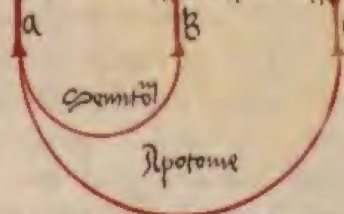 a B
Semitoᵐl
Apotome